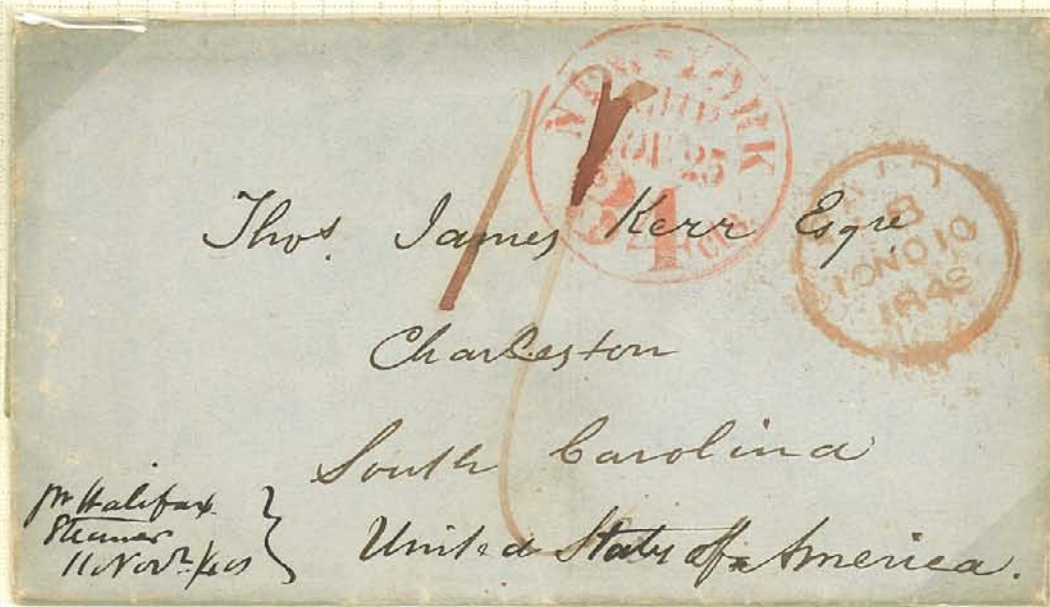 NEW-YORK
SHIP
NOV 25
24 CTS
PAID
10 NO 10
1848
Thos. James Kerr Esqre
Charleston
South Carolina
United States of America.
pr Halifax
Steamer
11 Novr/48